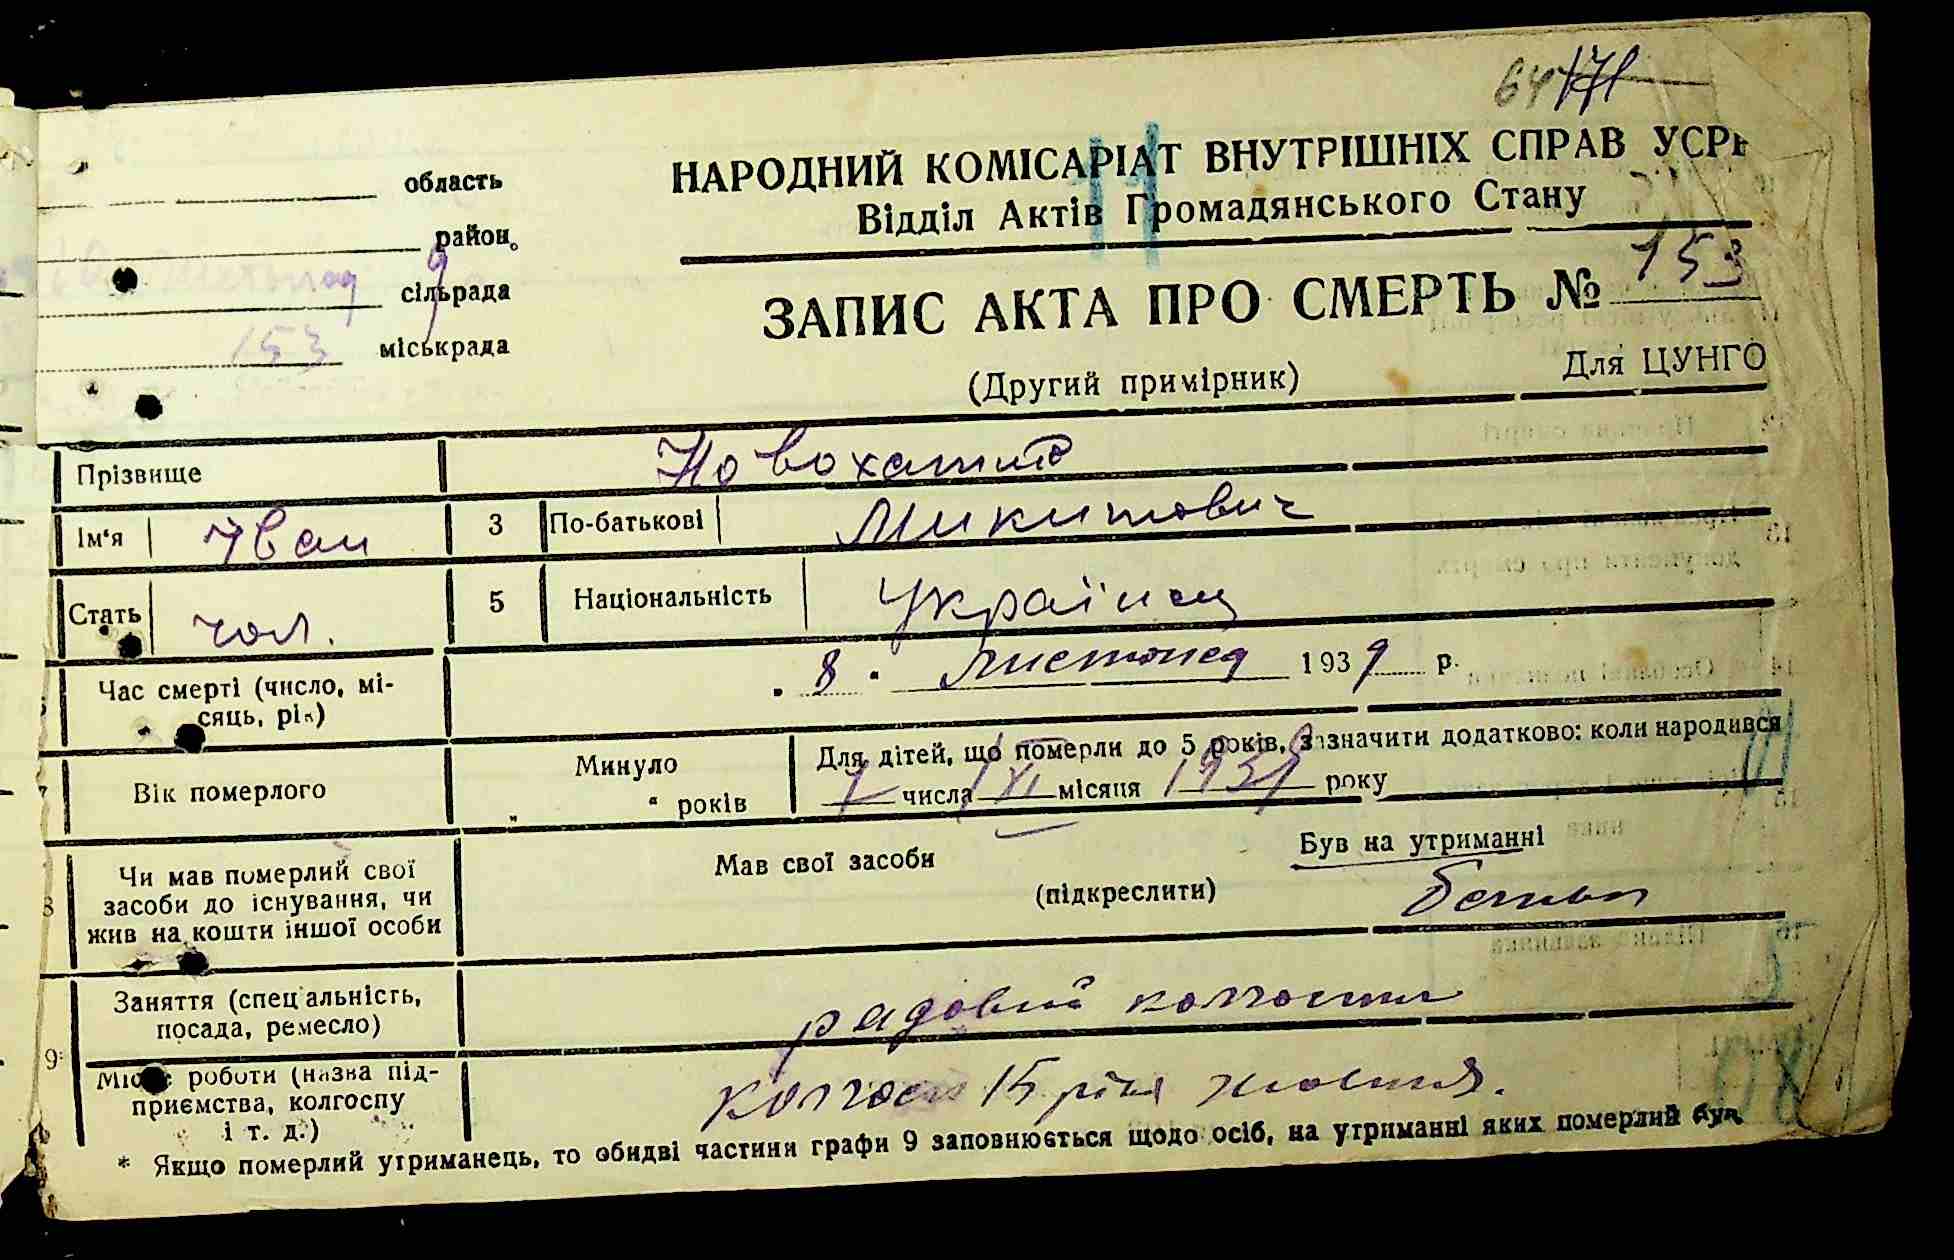 64 171
область
НАРОДНИЙ КОМІСАРІАТ ВНУТРІШНІХ СПРАВ УСРР
район
Відділ Актів Громадянського Стану
сільрада
ЗАПИС АКТА ПРО СМЕРТЬ № 153
153 міськрада
(Другий примірник)
Для ЦУНГО
Прізвище Новохатто
Ім'я Іван 3 По-батькові Микитович
Стать чол. 5 Національність Українец
Час смерті (число, мі-
сяць, рік)
„ 8 " листопад 1939 р.
Вік померлого
Минуло
„ " років
Для дітей, що померли до 5 років, зазначити додатково: коли народився
7 числа XI місяця 1939 року
8 Чи мав померлий свої
засоби до існування, чи
жив на кошти іншої особи
Мав свої засоби
(підкреслити)
Був на утриманні
батька
9* Заняття (спеціальність,
посада, ремесло)
рядовий колгоспник
Місце роботи (назва під-
приємства, колгоспу
і т. д.)
колгосп 15 річчя жовтня.
* Якщо померлий утриманець, то обидві частини графи 9 заповнюється щодо осіб, на утриманні яких померлий був